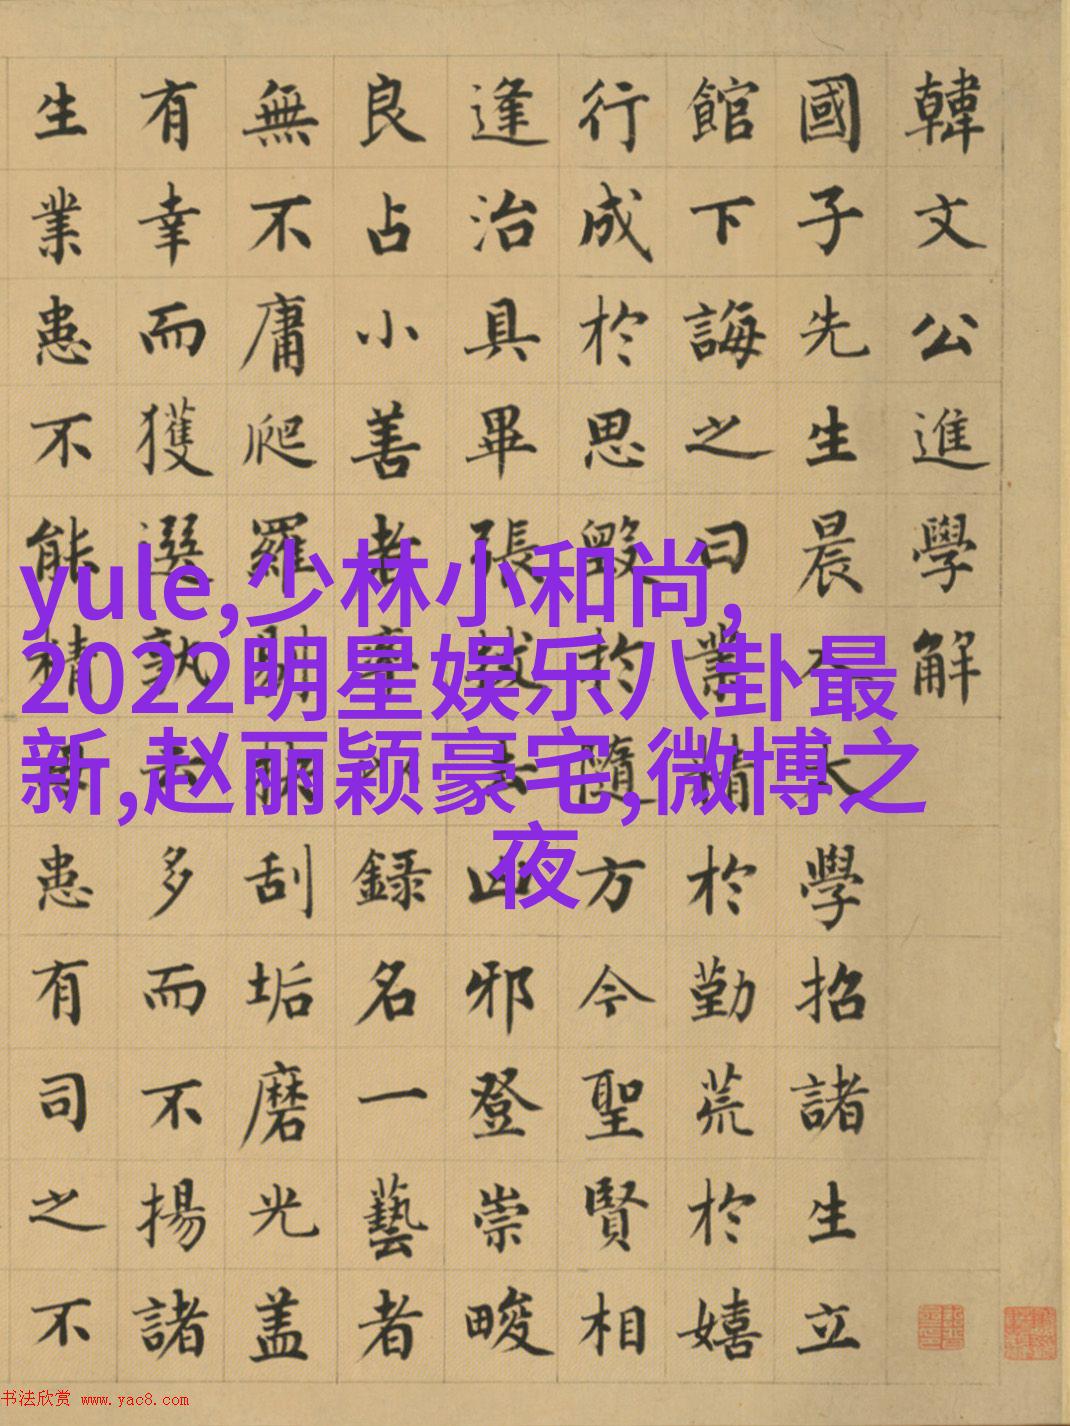 韓文公進學解
國子先生晨入太學招諸生立
館下誨之曰業精於勤荒於嬉
行成於思毀於隨方今聖賢相
逢治具畢張拔去凶邪登崇畯
良占小善者率以録名一藝者
無不庸爬羅剔抉刮垢磨光盖
有幸而獲選孰云多而不揚諸
生業患不能精患有司之不
yule,少林小和尚,
2022明星娱乐八卦最
新,赵丽颖豪宅,微博之
夜
书法欣赏 www.yac8.com